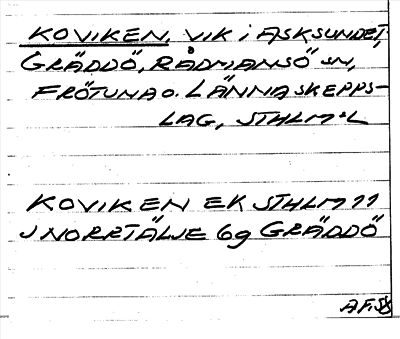 KOVIKEN, VIK i ASKSUNDET,
GRÄDDÖ, RÅDMANSÖ SN,
FRÖTUNA O. LÄNNA SKEPPS-
LAG, STHLMS L
KOVIKEN EK STHLM 11
J NORRTÄLJE 6g GRÄDDÖ
A.F. 58